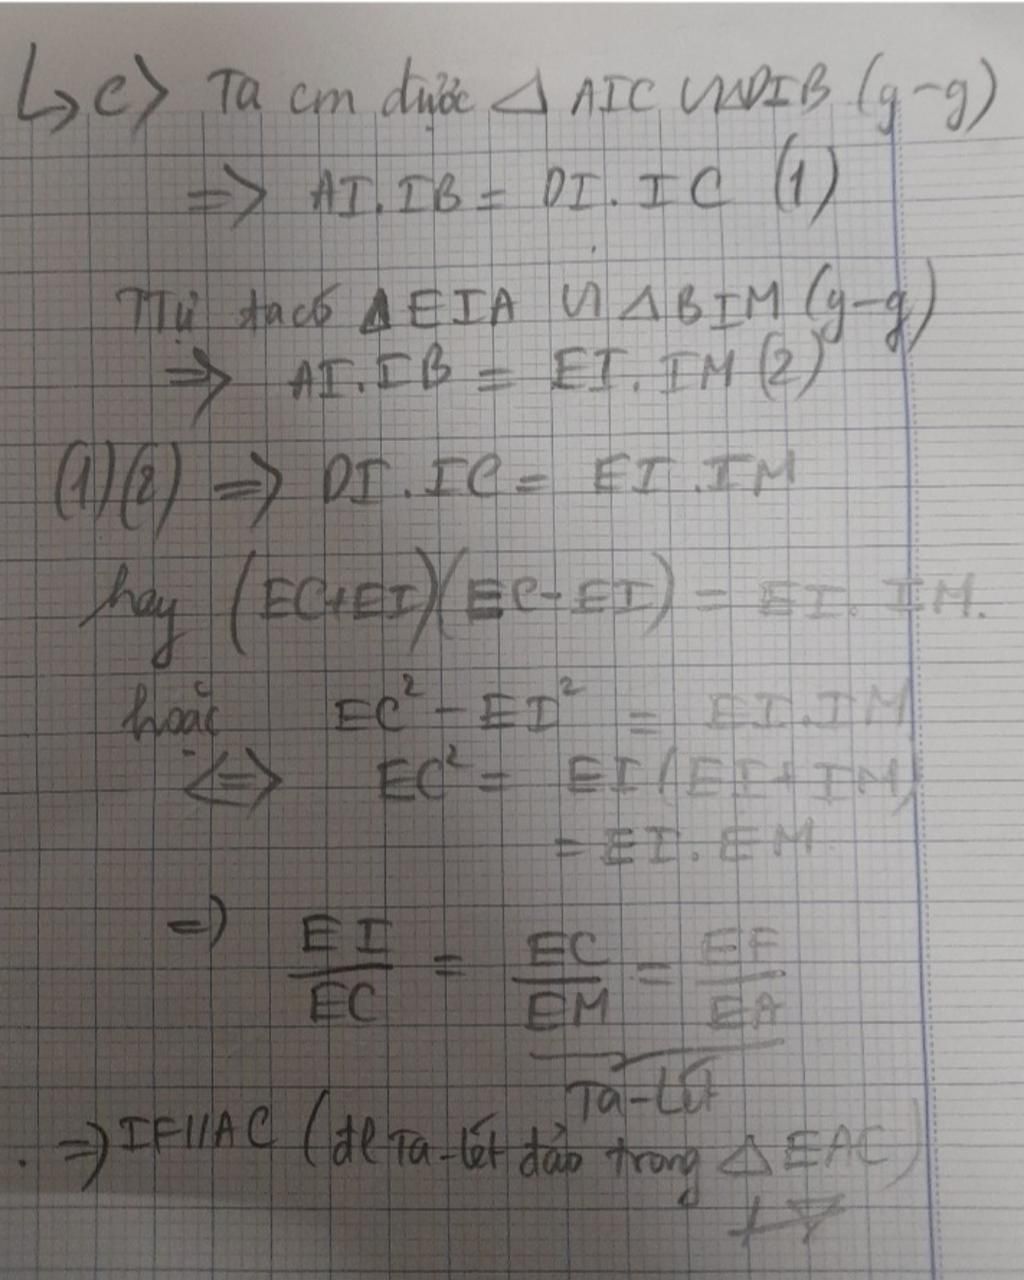 ↳ c> Ta cm được Δ AIC ∽ ΔDIB (g-g)
=> AI.IB = DI.IC (1)
TTự ta có ΔEIA ∽ ΔBIM (g-g)
=> AI.IB = EI.IM (2)
(1)(2) => DI.IC = EI.IM
hay (EC+EI)(EC-EI) = EI.IM.
hoặc EC² - EI² = EI.IM
<=> EC² = EI(EI+IM)
= EI.EM
=> EI/EC = EC/EM = EF/EA
Ta-lét
=> IF//AC (đl Ta-lét đảo trong Δ EAC)